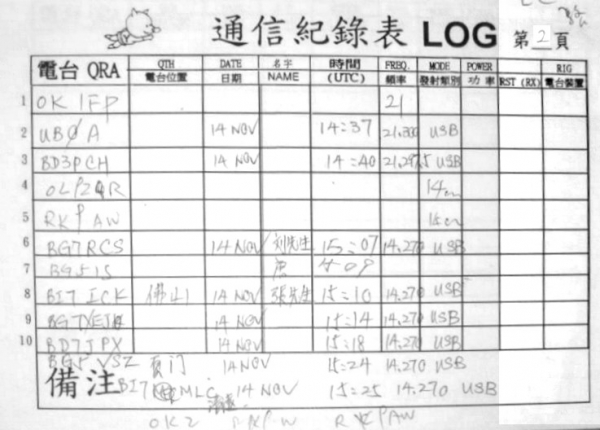 通信紀錄表 LOG 第2頁
電台 QRA QTH 電台位置 DATE 日期 名字 NAME 時間 (UTC) FREQ. 頻率 MODE 發射類別 POWER 功率 RST (RX) RIG 電台裝置
1 OK1FP 21
2 UB0A 14 NOV 14:37 21.300 USB
3 BD3PCH 14 NOV 14:40 21.2975 USB
4 14m
5 RK9AW 15m
6 BG7RCS 14 NOV 刘先生 15:07 14.270 USB
7 BG5IS
8 BI7ICK 佛山 14 NOV 張先生 15:10 14.270 USB
9 14 NOV 15:14 14.270 USB
10 BD7IPX 14 NOV 15:18 14.270 USB
BG5VSZ 厦门 14 NOV 15:24 14.270 USB
備注 BI7 MLC 14 NOV 15:25 14.270 USB
OK2